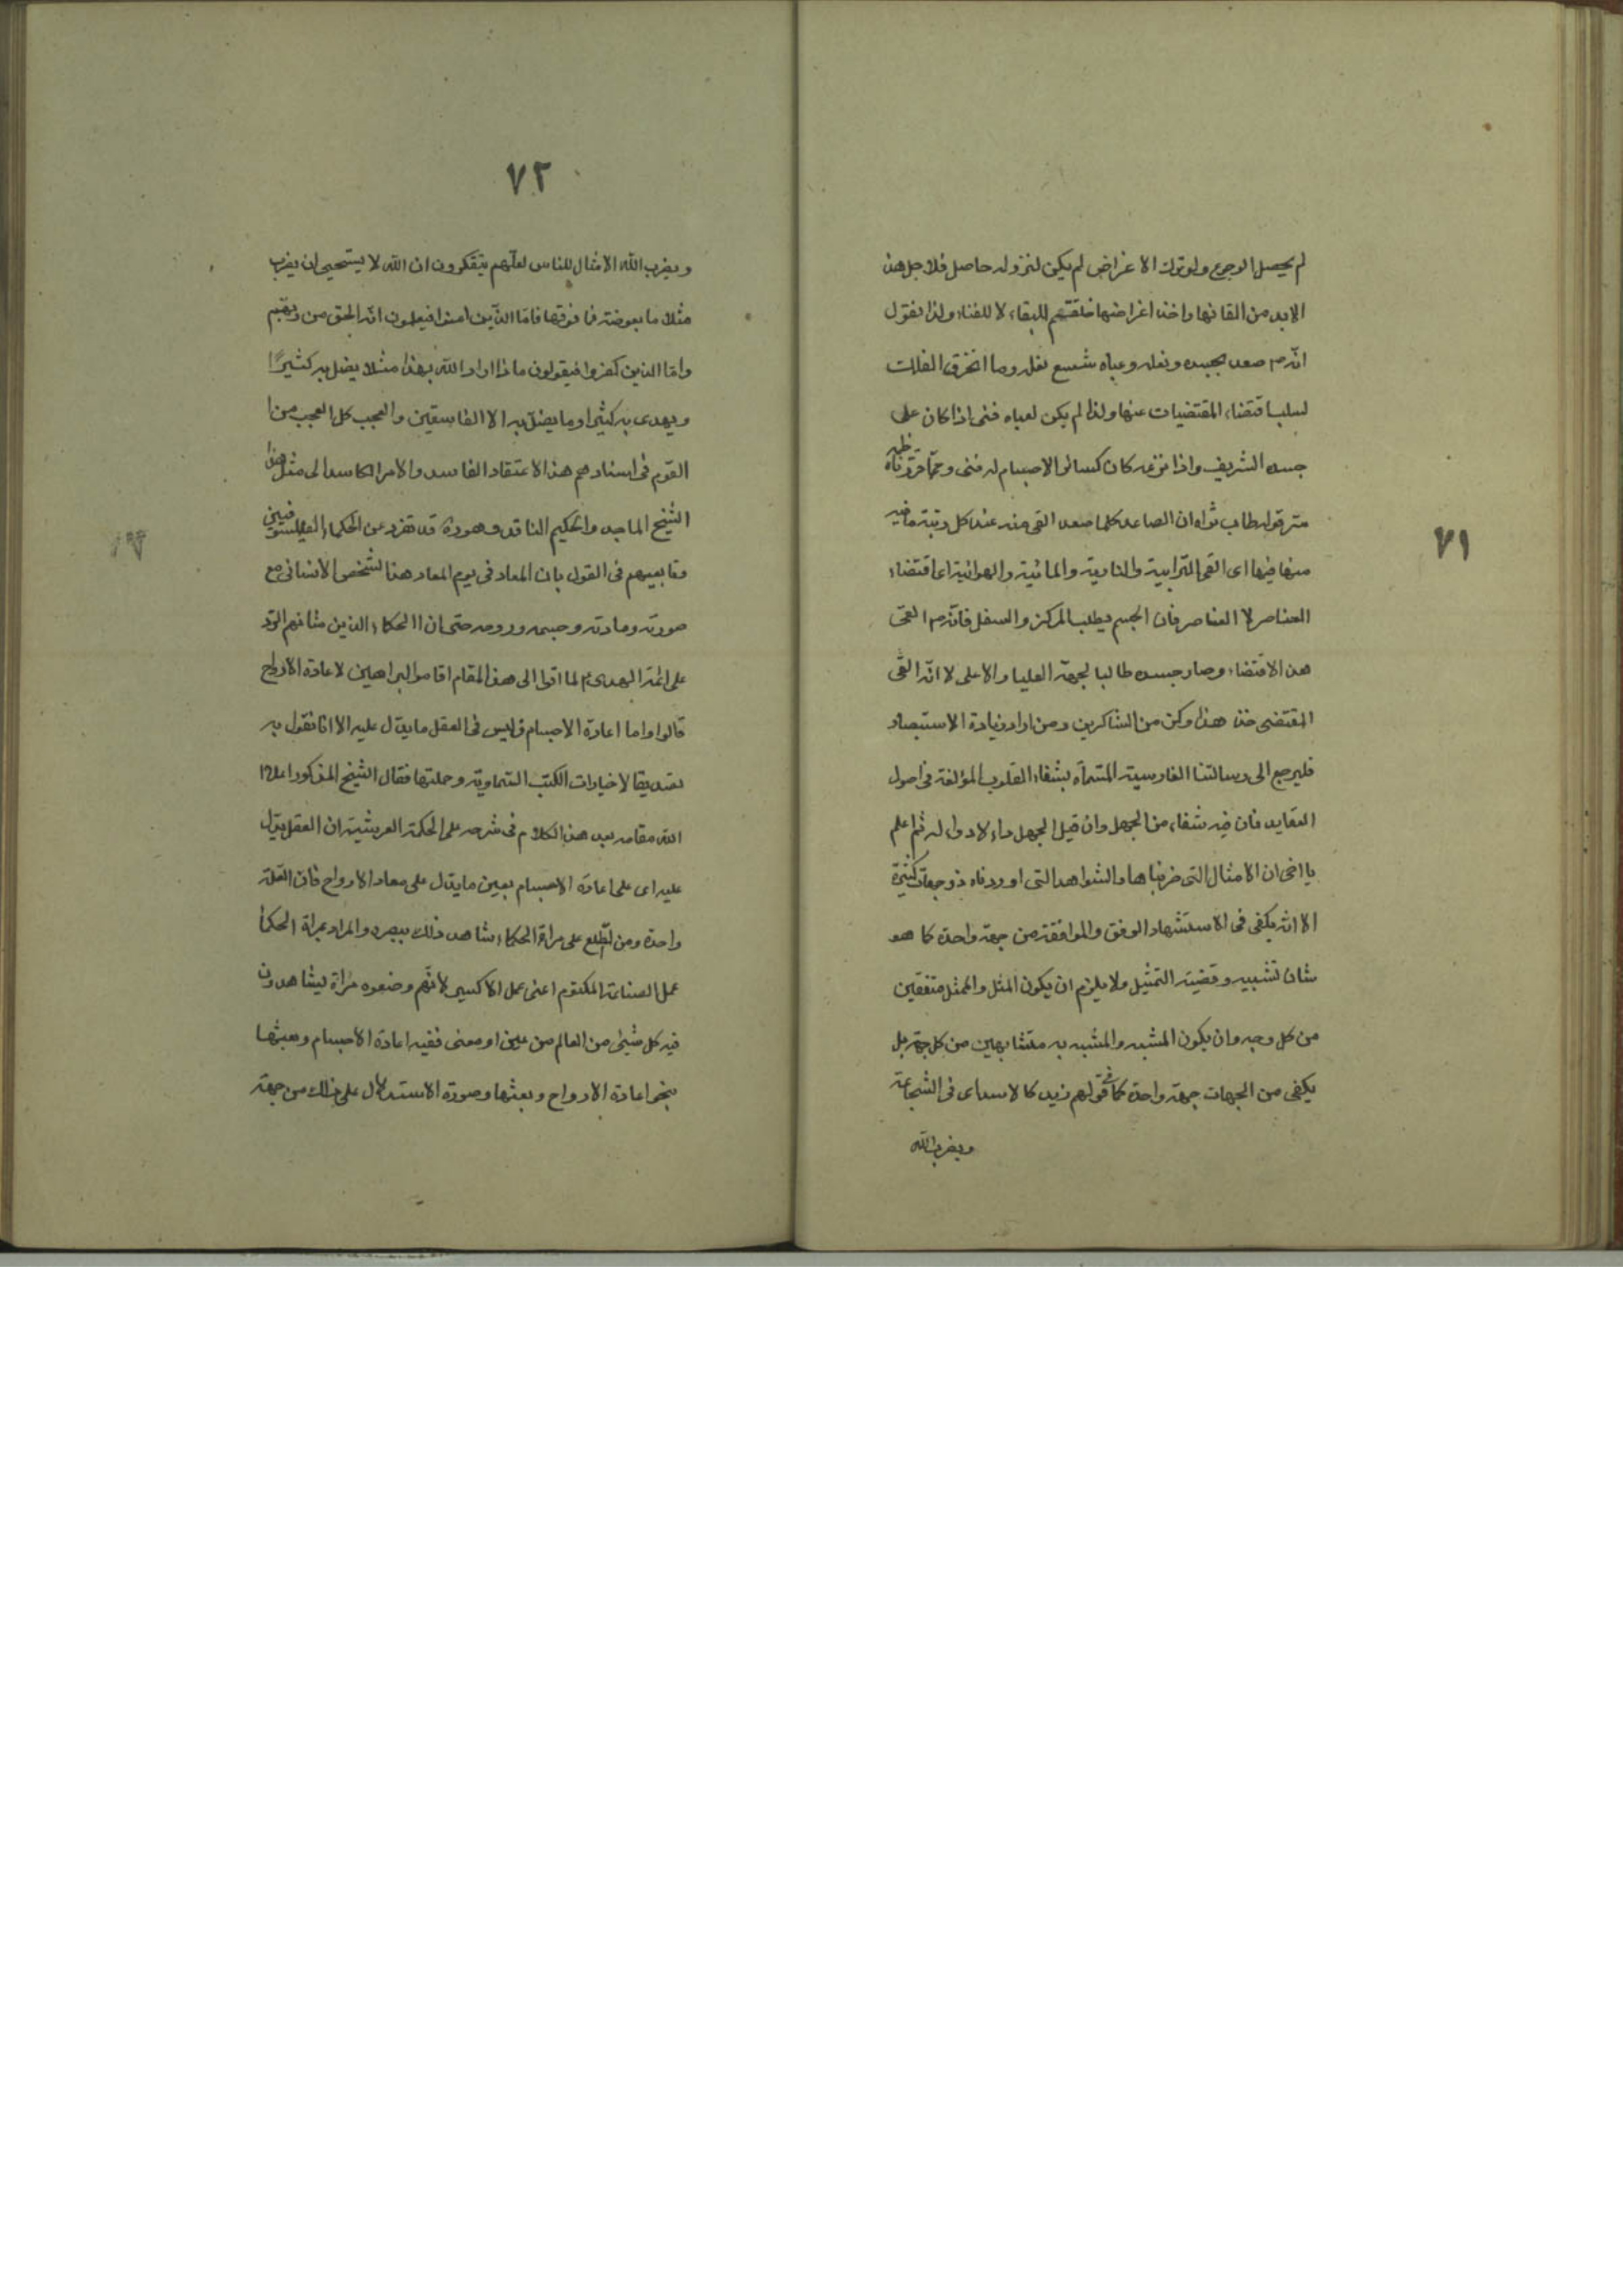 ٧١
لم يحصل الرجوع ولو ترك الاعراض لم يكن لنزوله حاصل فلاجل هذا
لابد من القائها واخذ اعراضها خلقتم للبقاء لا للفناء ولذا نقول
انه ص صعد بجسده ونعله وعباه شسع نعله وما انخرق الفلك
لسلب اقتضاء المقتضيات عنها ولذا لم يكن لعباه فئ اذا كان على
جسده الشريف واذا نزعه كان كسائر الاجسام له فئ ومما قررناه ظهر
سر قوله طاب ثراه ان الصاعد كلما صعد القى منه عند كل رتبة ما فيه
منها فيها اى القى الترابية والنارية والمائية والهوائية اى اقتضاء
العناصر لا العناصر فان الجسم يطلب المركز والسفل فانه ص القى
هذا الاقتضاء وصار جسده طالبا لجهة العليا والاعلى لا انه القى
المقتضى خذ هذا وكن من الشاكرين ومن اراد زيادة الاستبصار
فليرجع الى رسالتنا الفارسية المسماة بشفاء القلوب المؤلفة فى اصول
العقايد فان فيه شفاء من الجهل وان قيل الجهل داء لا دواء له ثم اعلم
يا اخى ان الامثال التى ضربناها والشواهد التى اوردناه ذو جهات كثيرة
الا انه يكفى فى الاستشهاد الوفق والموافقة من جهة واحدة كما هو
شان تشبيه وقضية التمثيل ولا يلزم ان يكون المثل والممثل متفقين
من كل وجه وان يكون المشبه والمشبه به متشابهين من كل جهة بل
يكفى من الجهات جهة واحدة كما فى قولهم زيد كالاسد اى فى الشجاعة
ويضرب الله
٧٢
ويضرب الله الامثال للناس لعلهم يتفكرون ان الله لا يستحيى ان يضرب
مثلا ما بعوضة فما فوقها فاما الذين امنوا فيعلمون انه الحق من ربهم
واما الذين كفروا فيقولون ماذا اراد الله بهذا مثلا يضل به كثيرًا
ويهدى به كثيرا وما يضل به الا الفاسقين والعجب كل العجب من
القوم فى اسنادهم هذا الاعتقاد الفاسد والامر الكاسد الى مثل هذا
الشيخ الماجد والحكيم الناقد وهو ره قد تفرد عن الحكماء الفيلسوفيين
وتابعيهم فى القول بان المعاد فى يوم المعاد هذا لشخص الانسانى مع
صورته ومادته وجسمه وروحه حتى ان الحكماء الذين شانهم الرد
على ائمة الهدى ع لما اتوا الى هذا المقام اقاموا البراهين لاعادة الارواح
قالوا واما اعادة الاجسام فليس فى العقل ما يدل عليه الا انا نقول به
تصديقا لاخبارات الكتب السماوية وحملتها فقال الشيخ المذكور اعلا
الله مقامه بعد هذا الكلام فى شرحه على الحكمة العرشية ان العقل يدل
عليه اى على اعادة الاجسام بعين ما يدل على معاد الارواح فان العلة
واحدة ومن اطلع على مراة الحكماء شاهد ذلك ببصره والمراد بمراة الحكما
عمل الصناعة المكتوم اعنى عمل الاكسير لانهم وضعوه مراة ليشاهدون
فيه كل شيئ من العالم من عين او معنى ففيه اعادة الاجسام وبعثها
بنحو اعادة الارواح وبعثها وصورة الاستدلال على ذلك من جهة